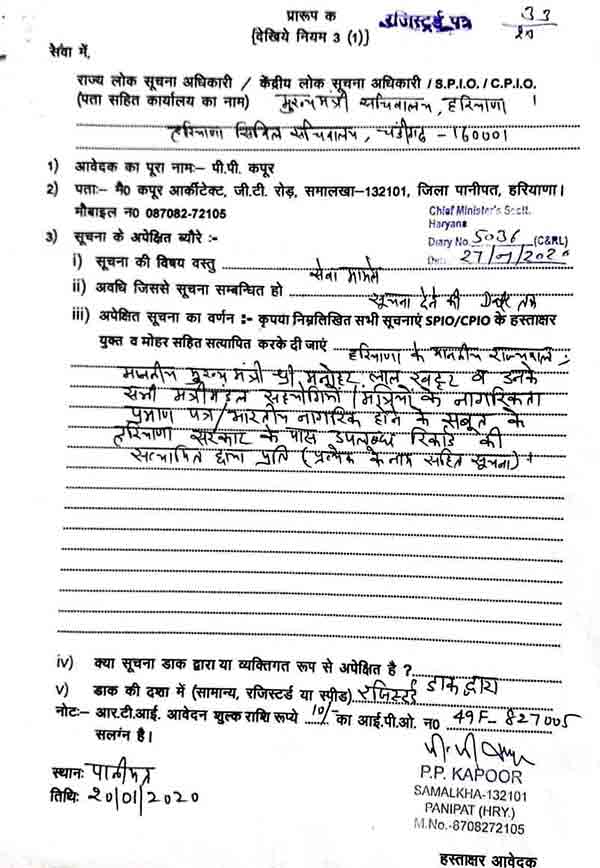 प्रारूप क रजिस्टर्ड पत्र 33/20
[देखिये नियम 3 (1)]
सेवा में,
राज्य लोक सूचना अधिकारी / केंद्रीय लोक सूचना अधिकारी / S.P.I.O. / C.P.I.O.
(पता सहित कार्यालय का नाम) मुख्यमंत्री सचिवालय, हरियाणा।
हरियाणा सिविल सचिवालय, चंडीगढ़ - 160001
1) आवेदक का पूरा नामः– पी.पी. कपूर
2) पताः– मै0 कपूर आर्कीटेक्ट, जी.टी. रोड़, समालखा–132101, जिला पानीपत, हरियाणा।
मौबाइल न0 087082-72105
Chief Minister's Sectt.
Haryana
Diary No. 5036 (C&RL)
Date 27/1/2020
3) सूचना के अपेक्षित ब्यौरे :–
i) सूचना की विषय वस्तु सेवा मामले
ii) अवधि जिससे सूचना सम्बन्धित हो सूचना देने की Date तक
iii) अपेक्षित सूचना का वर्णन :– कृपया निम्नलिखित सभी सूचनाएं SPIO/CPIO के हस्ताक्षर
युक्त व मोहर सहित सत्यापित करके दी जाएं हरियाणा के माननीय राज्यपाल,
माननीय मुख्य मंत्री श्री मनोहर लाल खट्टर व उनके
सभी मंत्रीमंडल सहयोगियों/मंत्रियों के नागरिकता
प्रमाण पत्र/भारतीय नागरिक होने के सबूत के
हरियाणा सरकार के पास उपलब्ध रिकार्ड की
सत्यापित छाया प्रति (प्रत्येक के नाम सहित सूचना)।
iv) क्या सूचना डाक द्वारा या व्यक्तिगत रूप से अपेक्षित है ? डाक द्वारा
v) डाक की दशा में (सामान्य, रजिस्टर्ड या स्पीड) रजिस्टर्ड
नोटः– आर.टी.आई. आवेदन शुल्क राशि रूप्ये 10/- का आई.पी.ओ. न0 49F-827005
सलंग्न है।
P.P. KAPOOR
SAMALKHA-132101
PANIPAT (HRY.)
M.No.-8708272105
स्थानः पानीपत
तिथिः 20/01/2020
हस्ताक्षर आवेदक